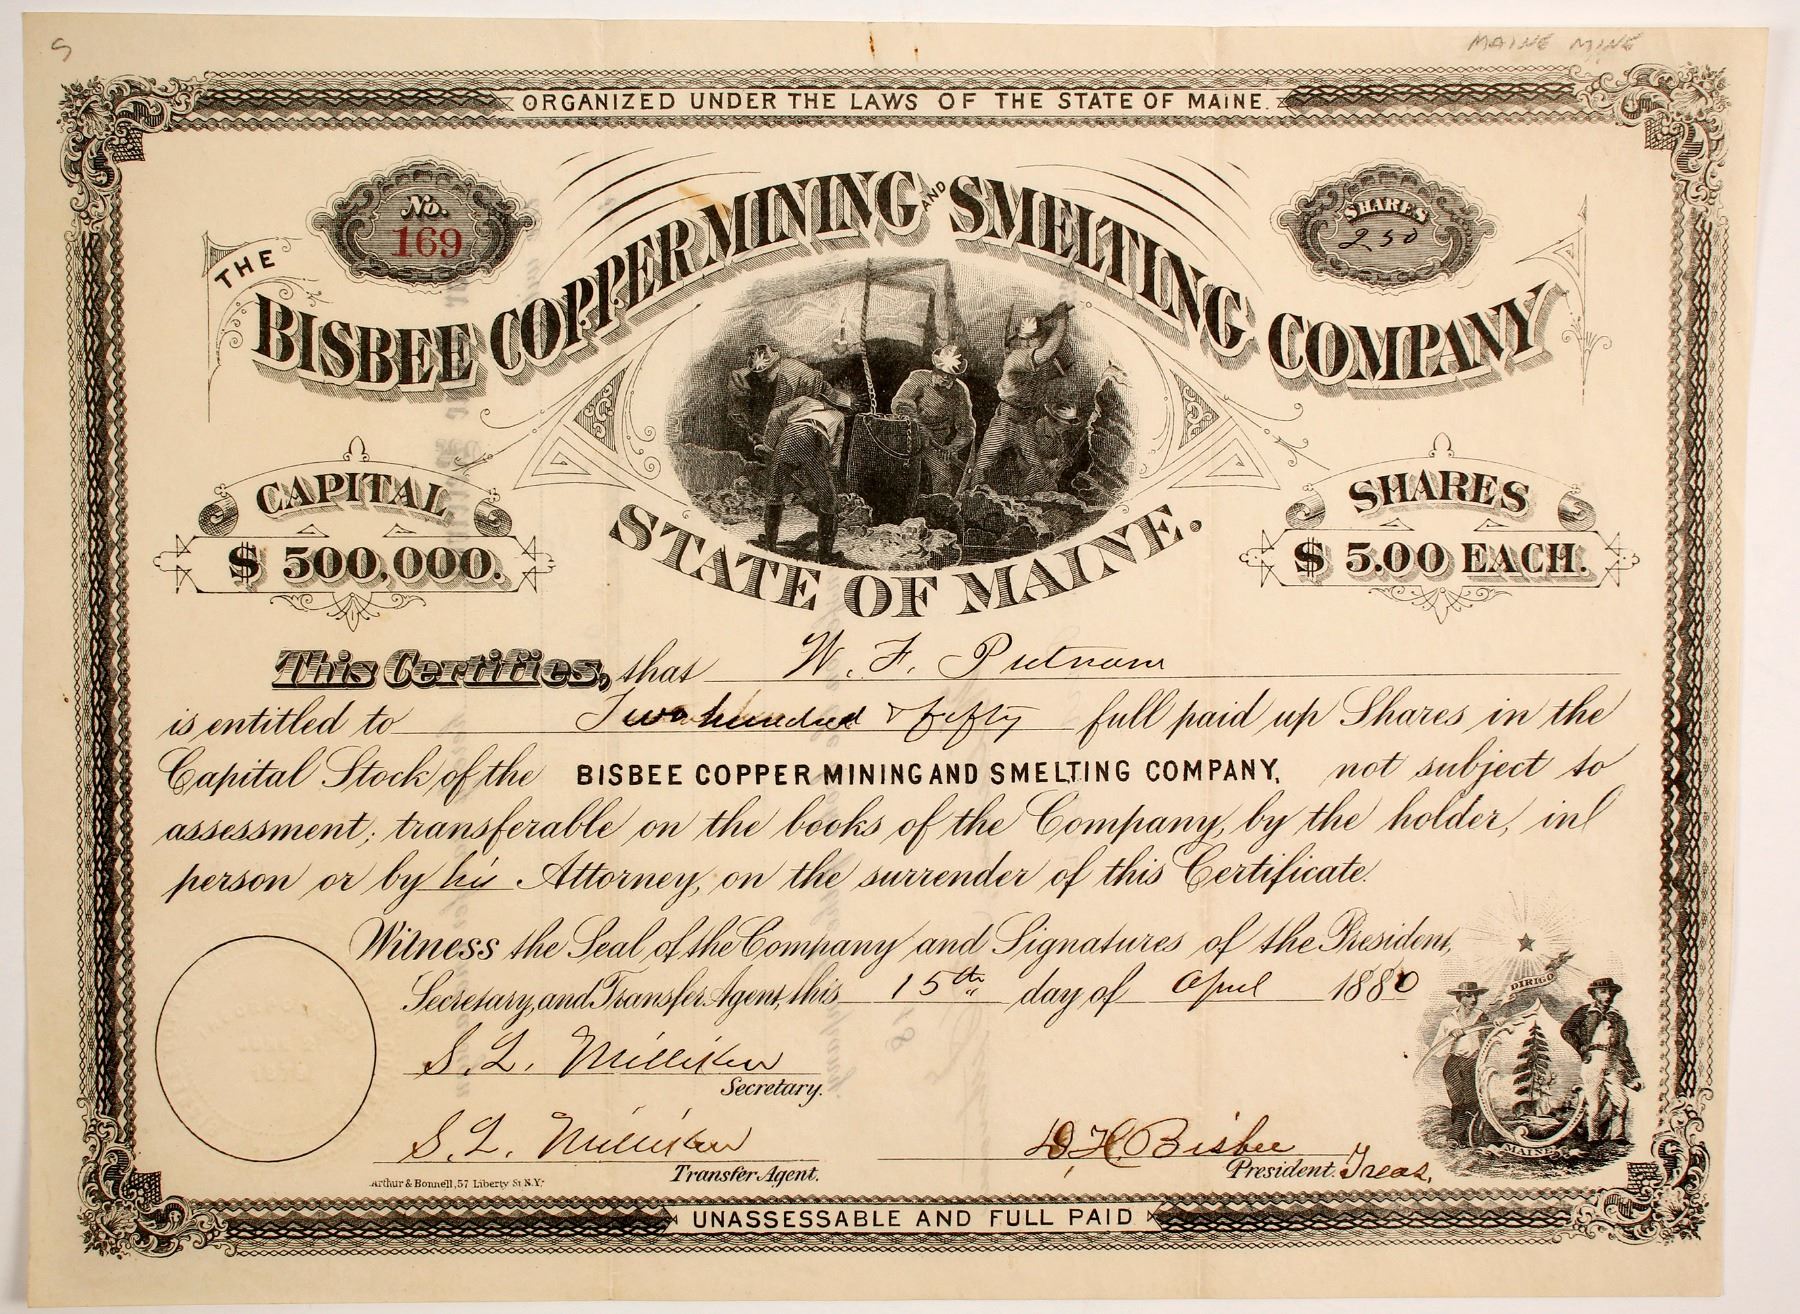 S
MAINE MINE
ORGANIZED UNDER THE LAWS OF THE STATE OF MAINE.
No.
169
SHARES
250
THE
BISBEE COPPER MINING AND SMELTING COMPANY
CAPITAL
$ 500,000.
SHARES
$ 5.00 EACH.
STATE OF MAINE.
This Certifies, that W. F. Putnam
is entitled to Two hundred & fifty full paid up Shares in the
Capital Stock of the BISBEE COPPER MINING AND SMELTING COMPANY, not subject to
assessment; transferable on the books of the Company, by the holder, in
person or by his Attorney, on the surrender of this Certificate.
Witness the Seal of the Company and Signatures of the President,
Secretary, and Transfer Agent, this 15th day of April 1880
DIRIGO
S. L. Milliken
Secretary.
S. L. Milliken
Transfer Agent.
D. H. Bisbee
President. Treas.
MAINE
Arthur & Bonnell, 57 Liberty St. N.Y.
UNASSESSABLE AND FULL PAID